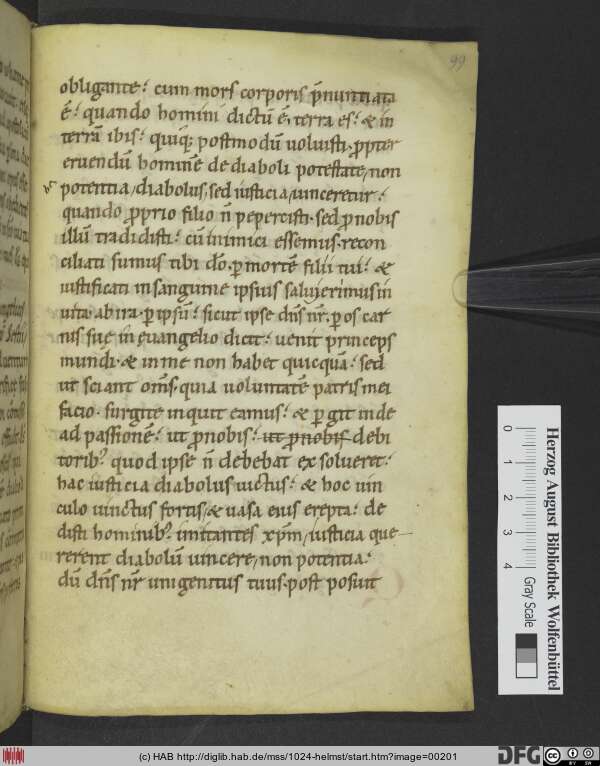 99
obligante: cum mors corporis p̄nuntiata
ē: quando homini dictū ē, terra es: & in
terrā ibis: quiq; postmodū uoluisti: ꝓpter
eruendū hominē de diaboli potestate, non
potentia, diabolus, sed iusticia, uinceretur:
quando ꝓprio filio n̄ pepercisti. sed ꝓ nobis
illū tradidisti: cū inimici essemus. recon
ciliati sumus tibi dō. ꝑ mortē filii tui: &
iustificati in sanguine ipsius salui erimus in
uita ab ira. ꝑ ipsū: sicut ipse dn̄s nr̄. ꝑ os car
nis suę in ęuangelio dicit: uenit princeps
mundi. & in me non habet quicquā: sed
ut sciant om̄s. quia uoluntatē patris mei
facio. surgite inquit eamus: & ꝑgit inde
ad passionē: ut ꝓ nobis: ut ꝓ nobis debi
torib; quod ipse n̄ debebat exsolueret:
hac iusticia diabolus uictus: & hoc uin
culo uinctus fortis, & uasa eius erepta: de
disti hominib; imitantes xp̄m, iusticia que
rerent diabolū uincere, non potentia:
dū dn̄s nr̄ unigenitus tuus. post posuit
0 1 2 3 4
Gray Scale
Herzog August Bibliothek Wolfenbüttel
(c) HAB http://diglib.hab.de/mss/1024-helmst/start.htm?image=00201
DFG
cc BY SA